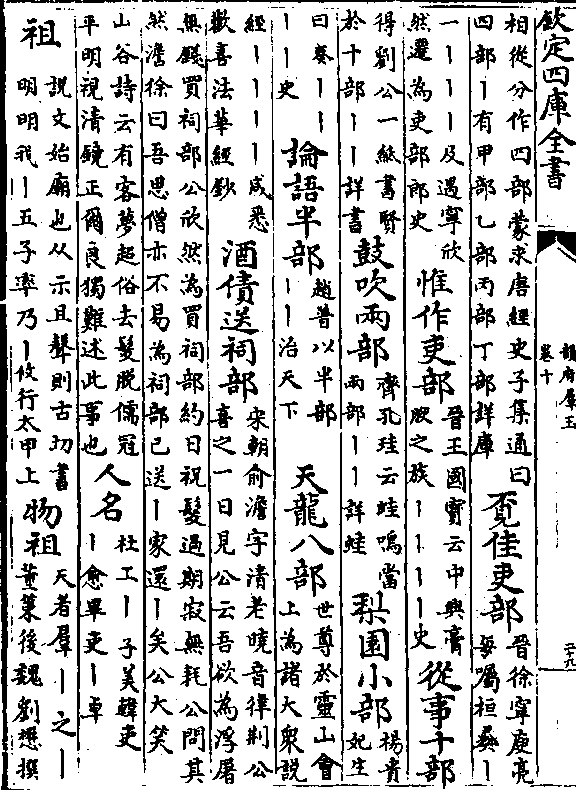 欽定四庫全書
韻府羣玉
卷十
二十九
相從分作四部蒙求唐經史子集通曰
四部丨有甲部乙部丙部丁部詳庫
覓佳吏部
晉徐寧庾亮
每囑桓彝丨
一丨丨丨及遇寧欣
然遷為吏部郎史
惟作吏部
晉王國寶云中興膏
腴之族丨丨丨丨史
從事十部
得劉公一紙書賢
於十部丨丨詳書
鼓吹兩部
齊孔珪云蛙鳴當
兩部丨丨詳蛙
梨園小部
楊貴
妃生
曰奏丨丨
丨丨史
論語半部
趙普以半部
丨丨治天下
天龍八部
世尊於靈山會
上為諸大衆說
經丨丨丨丨咸悉
歡喜法華經鈔
酒債送祠部
宋朝俞澹字清老曉音律荆公
喜之一日見公云吾欲為浮屠
無錢買祠部公欣然為買祠部約日祝髮過期寂無耗公問其
然澹徐曰吾思僧亦不易為祠部已送丨家還丨矣公大笑
山谷詩云有客夢超俗去髮脫儒冠
平明視清鏡正爾良獨難述此事也
人名
杜工丨子美韓吏
丨愈畢吏丨卓
祖
說文始廟也从示且聲則古切書
明明我丨五子率乃丨攸行太甲上
物祖
天者羣丨之丨
董策後魏劉懋撰